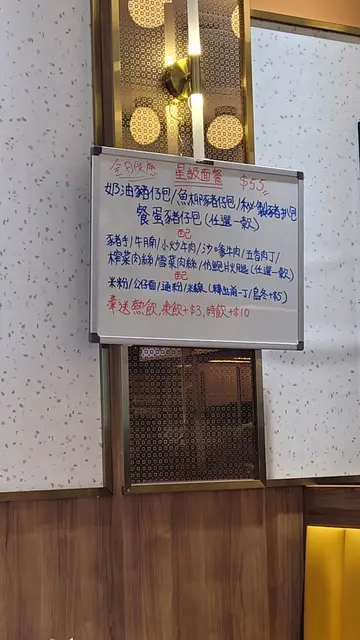 今日快樂 星級面餐 $55
奶油豬仔包/魚柳豬仔包/秘製豬扒包
餐蛋豬仔包(任選一款)
配
豬手/牛腩/小炒牛肉/沙嗲牛肉/五香肉丁/
榨菜肉絲/雪菜肉絲/仿鮑片火腿(任選一款)
配
米粉/公仔面/通粉/米線(轉出前一丁/烏冬+$5)
奉送熱飲,凍飲+$3,特飲+$10